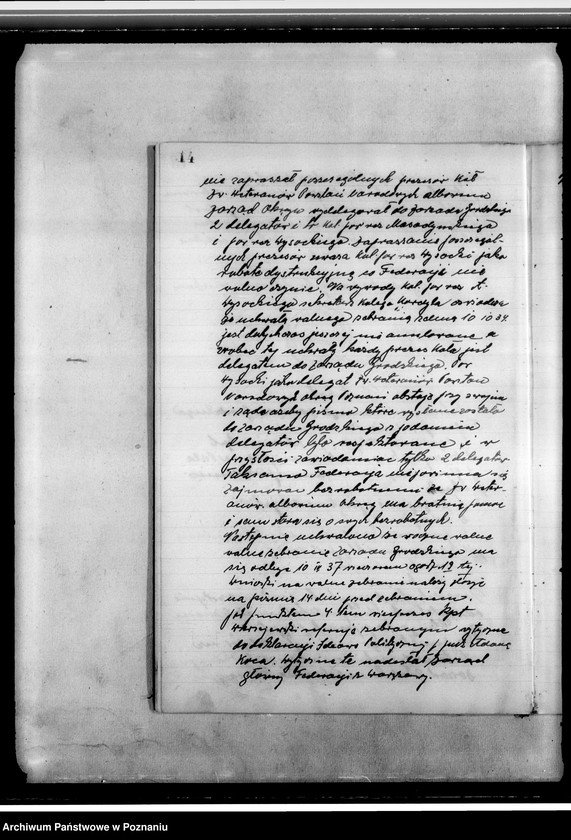 14
nie zapraszał poszczególnych prezesów Kół
Zw. Weteranów Powstań Narodowych albowiem
Zarząd Okręgu wydelegował do Zarządu Grodzkiego
2 delegatów i to kol. por rez
i por rez Wysockiego. Zapraszanie poszczegól-
nych prezesów uważa kol. por rez Wysocki jako
robotę dystrukcyjną w Federacji nie
wolno czynić. Na wywody kol. por rez St.
Wysockiego sekretarz kolega oświadcza
że uchwała walnego zebrania z dnia 10 10 34
jest dotychczas jeszcze nie anulowana a
wobec tej uchwały każdy prezes koła jest
delegatem do Zarządu Grodzkiego. Por
Wysocki jako delegat Zw. Weteranów Powstań
Narodowych okręg Poznań obstaje przy swojem
i żąda ażeby pismo które wysłane zostało
do Zarządu Grodzkiego z podaniem
delegatów było respektowane i w
przyszłości zawiadamiać tylko 2 delegatów
Tak samo Federacja nie powinna się
zajmować bezrobotnemi ze Zw. Weter-
anów. albowiem okręg ma bratnią pomoc
i sam stara się o swych bezrobotnych.
Następnie uchwalono że roczne walne
walne zebranie Zarządu Grodzkiego ma
się odbyć 10 IX 37 wieczorem o godz 19 tej.
Wnioski na walne zebranie należy złożyć
na piśmie 14 dni przed zebraniem.
Pod punktem 4 tem wiceprezes Kpt
referuje zebranym wytyczne
do Deklaracji Ideowo Politycznej p. pułk Adama
Koca. Wytyczne te nadesłał Zarząd
główny Federacji z Warszawy.
Archiwum Państwowe w Poznaniu